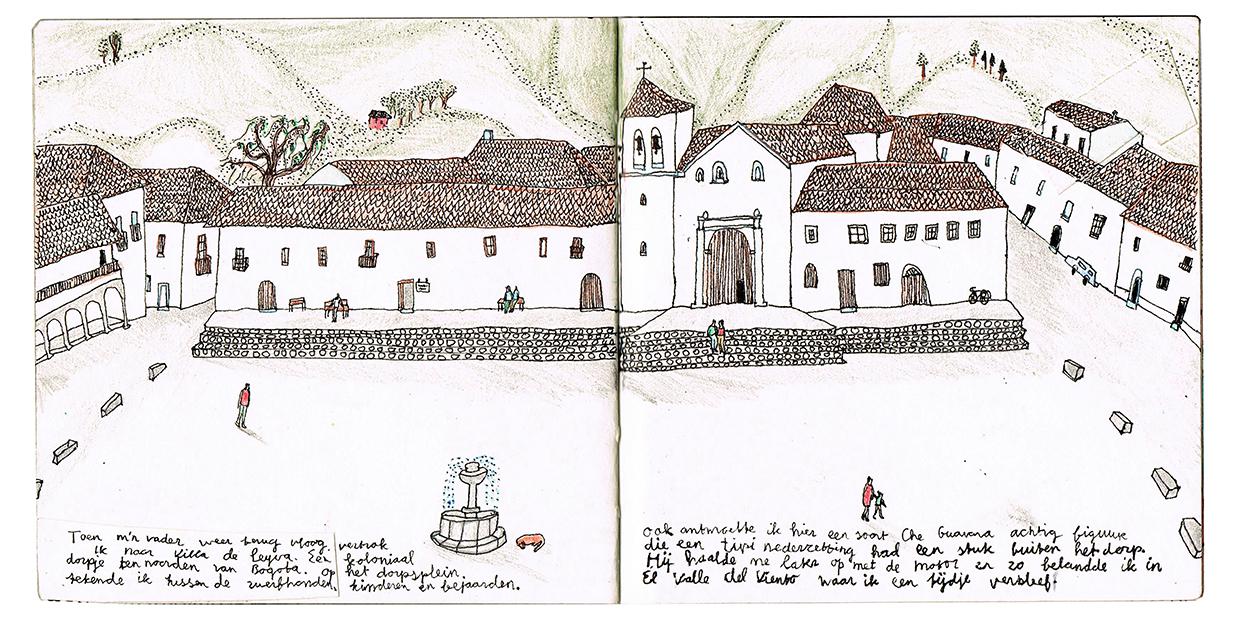 Toen m'n vader weer terug vloog, vertrok
ik naar Villa de Leyva. Een koloniaal
dorpje ten noorden van Bogota. Op het dorpsplein
tekende ik tussen de zwerfhonden, kinderen en bejaarden.
ook ontmoette ik hier een soort Che Guavara achtig figuur
die een tipi nederzetting had een stuk buiten het dorp.
Hij haalde me later op met de motor en zo belandde ik in
El Valle del Viento waar ik een tijdje verbleef.